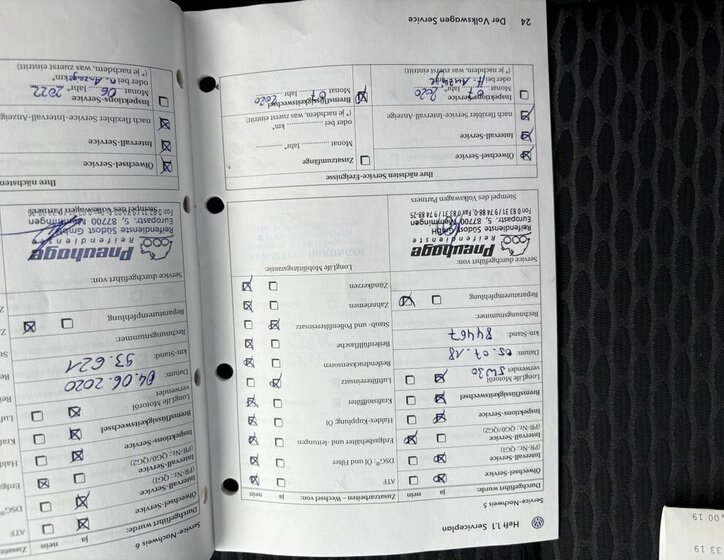 Heft 1.1 Serviceplan
Service-Nachweis 5
Durchgeführt wurde: ja nein
Ölwechsel-Service
Intervall-Service
(PR-Nr.: QG1)
Intervall-Service
(PR-Nr.: QG0/QG2)
Inspektions-Service
Bremsflüssigkeitswechsel
LongLife Motoröl
verwendet 5W30
Datum: 05.07.18
km-Stand: 84467
Rechnungsnummer:
Reparaturempfehlung
Service durchgeführt von:
Pneuhage
Reifendienste
Reifendienste Südost GmbH
Europastr. 5, 87700 Memmingen
Fon 0 83 31 / 9 74 88-0, Fax 0 83 31 / 9 74 88-25
Stempel des Volkswagen Partners
Zusatzarbeiten – Wechsel von: ja nein
ATF
DSG® Öl und Filter
Erdgasbehälter und -leitungen
Haldex-Kupplung Öl
Kraftstofffilter
Luftfiltereinsatz
Reifendrucksensoren
Reifenfüllflasche
Staub- und Pollenfiltereinsatz
Zahnriemen
Zündkerzen
LongLife Mobilitätsgarantie:
Ihre nächsten Service-Ereignisse
Ölwechsel-Service
Intervall-Service
nach flexibler Service-Intervall-Anzeige
Inspektions-Service
Monat 07 Jahr* 2020
oder bei
(*) je nachdem, was zuerst eintritt)
Zusatzumfänge
Monat Jahr*
oder bei km*
(*) je nachdem, was zuerst eintritt)
Bremsflüssigkeitswechsel
Monat 07 Jahr 2020
24 Der Volkswagen Service
Service-Nachweis 6
Durchgeführt wurde: ja nein
Ölwechsel-Service
Intervall-Service
(PR-Nr.: QG1)
Intervall-Service
(PR-Nr.: QG0/QG2)
Inspektions-Service
Bremsflüssigkeitswechsel
LongLife Motoröl
verwendet
Datum: 04.06.2020
km-Stand: 93.621
Rechnungsnummer:
Reparaturempfehlung
Service durchgeführt von:
Pneuhage
Reifendienste
Reifendienste Südost GmbH
Europastr. 5, 87700 Memmingen
Stempel des Volkswagen Partners
ATF
DSG®
Ihre nächsten
Ölwechsel-Service
Intervall-Service
nach flexibler Service-Intervall-Anzeige
Inspektions-Service
Monat 06 Jahr* 2022
oder bei n. Anzeige km*
(*) je nachdem, was zuerst eintritt)
00 19
33 19